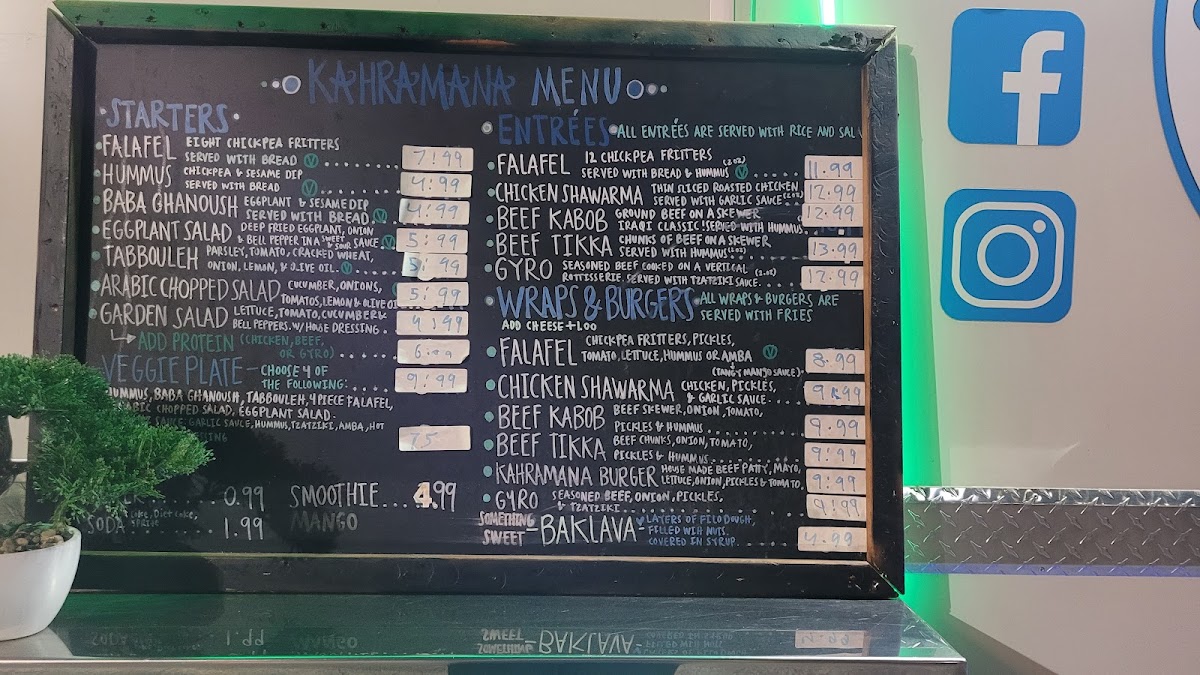 KAHRAMANA MENU
STARTERS
FALAFEL EIGHT CHICKPEA FRITTERS
SERVED WITH BREAD V 7.99
HUMMUS CHICKPEA & SESAME DIP
SERVED WITH BREAD V 4.99
BABA GHANOUSH EGGPLANT & SESAME DIP
SERVED WITH BREAD V 4.99
EGGPLANT SALAD DEEP FRIED EGGPLANT, ONION
& BELL PEPPER IN A SWEET & SOUR SAUCE V 5.99
TABBOULEH PARSLEY, TOMATO, CRACKED WHEAT,
ONION, LEMON, & OLIVE OIL V 5.99
ARABIC CHOPPED SALAD CUCUMBER, ONIONS,
TOMATOS, LEMON & OLIVE OIL 5.99
GARDEN SALAD LETTUCE, TOMATO, CUCUMBER &
BELL PEPPERS. W/ HOUSE DRESSING. 4.99
ADD PROTEIN (CHICKEN, BEEF,
OR GYRO) 6.00
VEGGIE PLATE - CHOOSE 4 OF
THE FOLLOWING: 9.99
HUMMUS, BABA GHANOUSH, TABBOULEH, 4 PIECE FALAFEL,
ARABIC CHOPPED SALAD, EGGPLANT SALAD.
SAUCE: GARLIC SAUCE, HUMMUS, TZATZIKI, AMBA, HOT
.75
0.99
SODA Coke, Diet Coke,
Sprite 1.99
SMOOTHIE... 4.99
MANGO
ENTRÉES ALL ENTRÉES ARE SERVED WITH RICE AND SAL
FALAFEL 12 CHICKPEA FRITTERS
SERVED WITH BREAD & HUMMUS (2oz) V 11.99
CHICKEN SHAWARMA THIN SLICED ROASTED CHICKEN,
SERVED WITH GARLIC SAUCE (2oz) 12.99
BEEF KABOB GROUND BEEF ON A SKEWER
IRAQI CLASSIC! SERVED WITH HUMMUS. 12.99
BEEF TIKKA CHUNKS OF BEEF ON A SKEWER,
SERVED WITH HUMMUS (2oz) 13.99
GYRO SEASONED BEEF COOKED ON A VERTICAL
ROTTISSERIE. SERVED WITH TZATZIKI SAUCE. (2oz) 12.99
WRAPS & BURGERS ALL WRAPS & BURGERS ARE
SERVED WITH FRIES
ADD CHEESE + 1.00
FALAFEL CHICKPEA FRITTERS, PICKLES,
TOMATO, LETTUCE, HUMMUS OR AMBA V
(TANGY MANGO SAUCE) 8.99
CHICKEN SHAWARMA CHICKEN, PICKLES,
& GARLIC SAUCE 9.99
BEEF KABOB BEEF SKEWER, ONION, TOMATO,
PICKLES & HUMMUS 9.99
BEEF TIKKA BEEF CHUNKS, ONION, TOMATO,
PICKLES & HUMMUS 9.99
KAHRAMANA BURGER HOUSE MADE BEEF PATTY, MAYO,
LETTUCE, ONION, PICKLES & TOMATO, 9.99
GYRO SEASONED BEEF, ONION, PICKLES,
& TZATZIKI 9.99
SOMETHING SWEET - BAKLAVA - LAYERS OF FILO DOUGH,
FILLED WIH NUTS.
COVERED IN SYRUP. 4.99